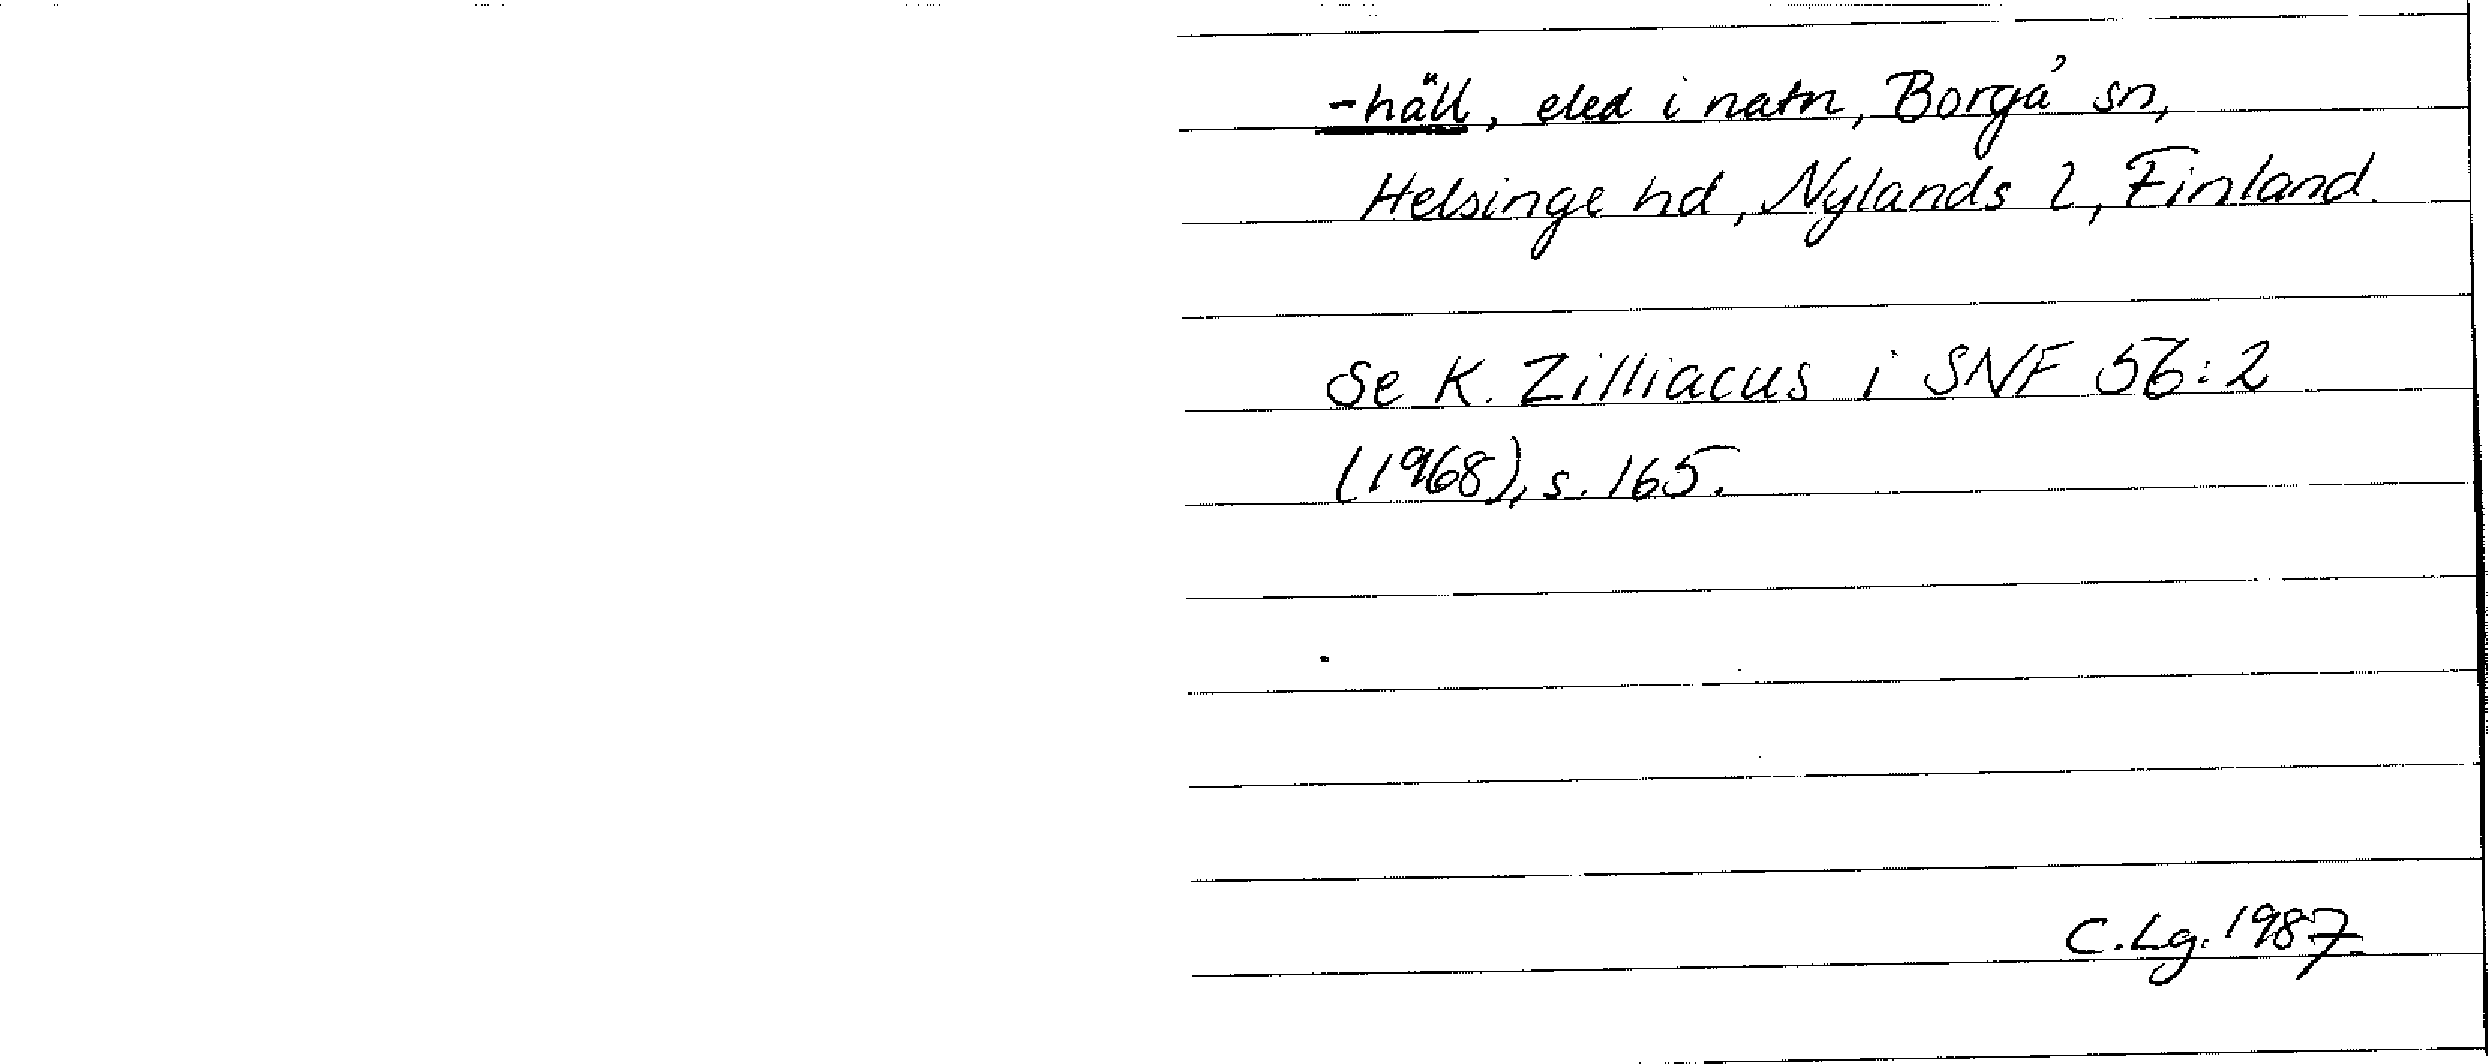 -häll, eled i natn, Borgå sn,
Helsinge hd, Nylands l, Finland.
Se K. Zilliacus i SNF 56:2
(1968), s. 165.
C.Lg. 1987.